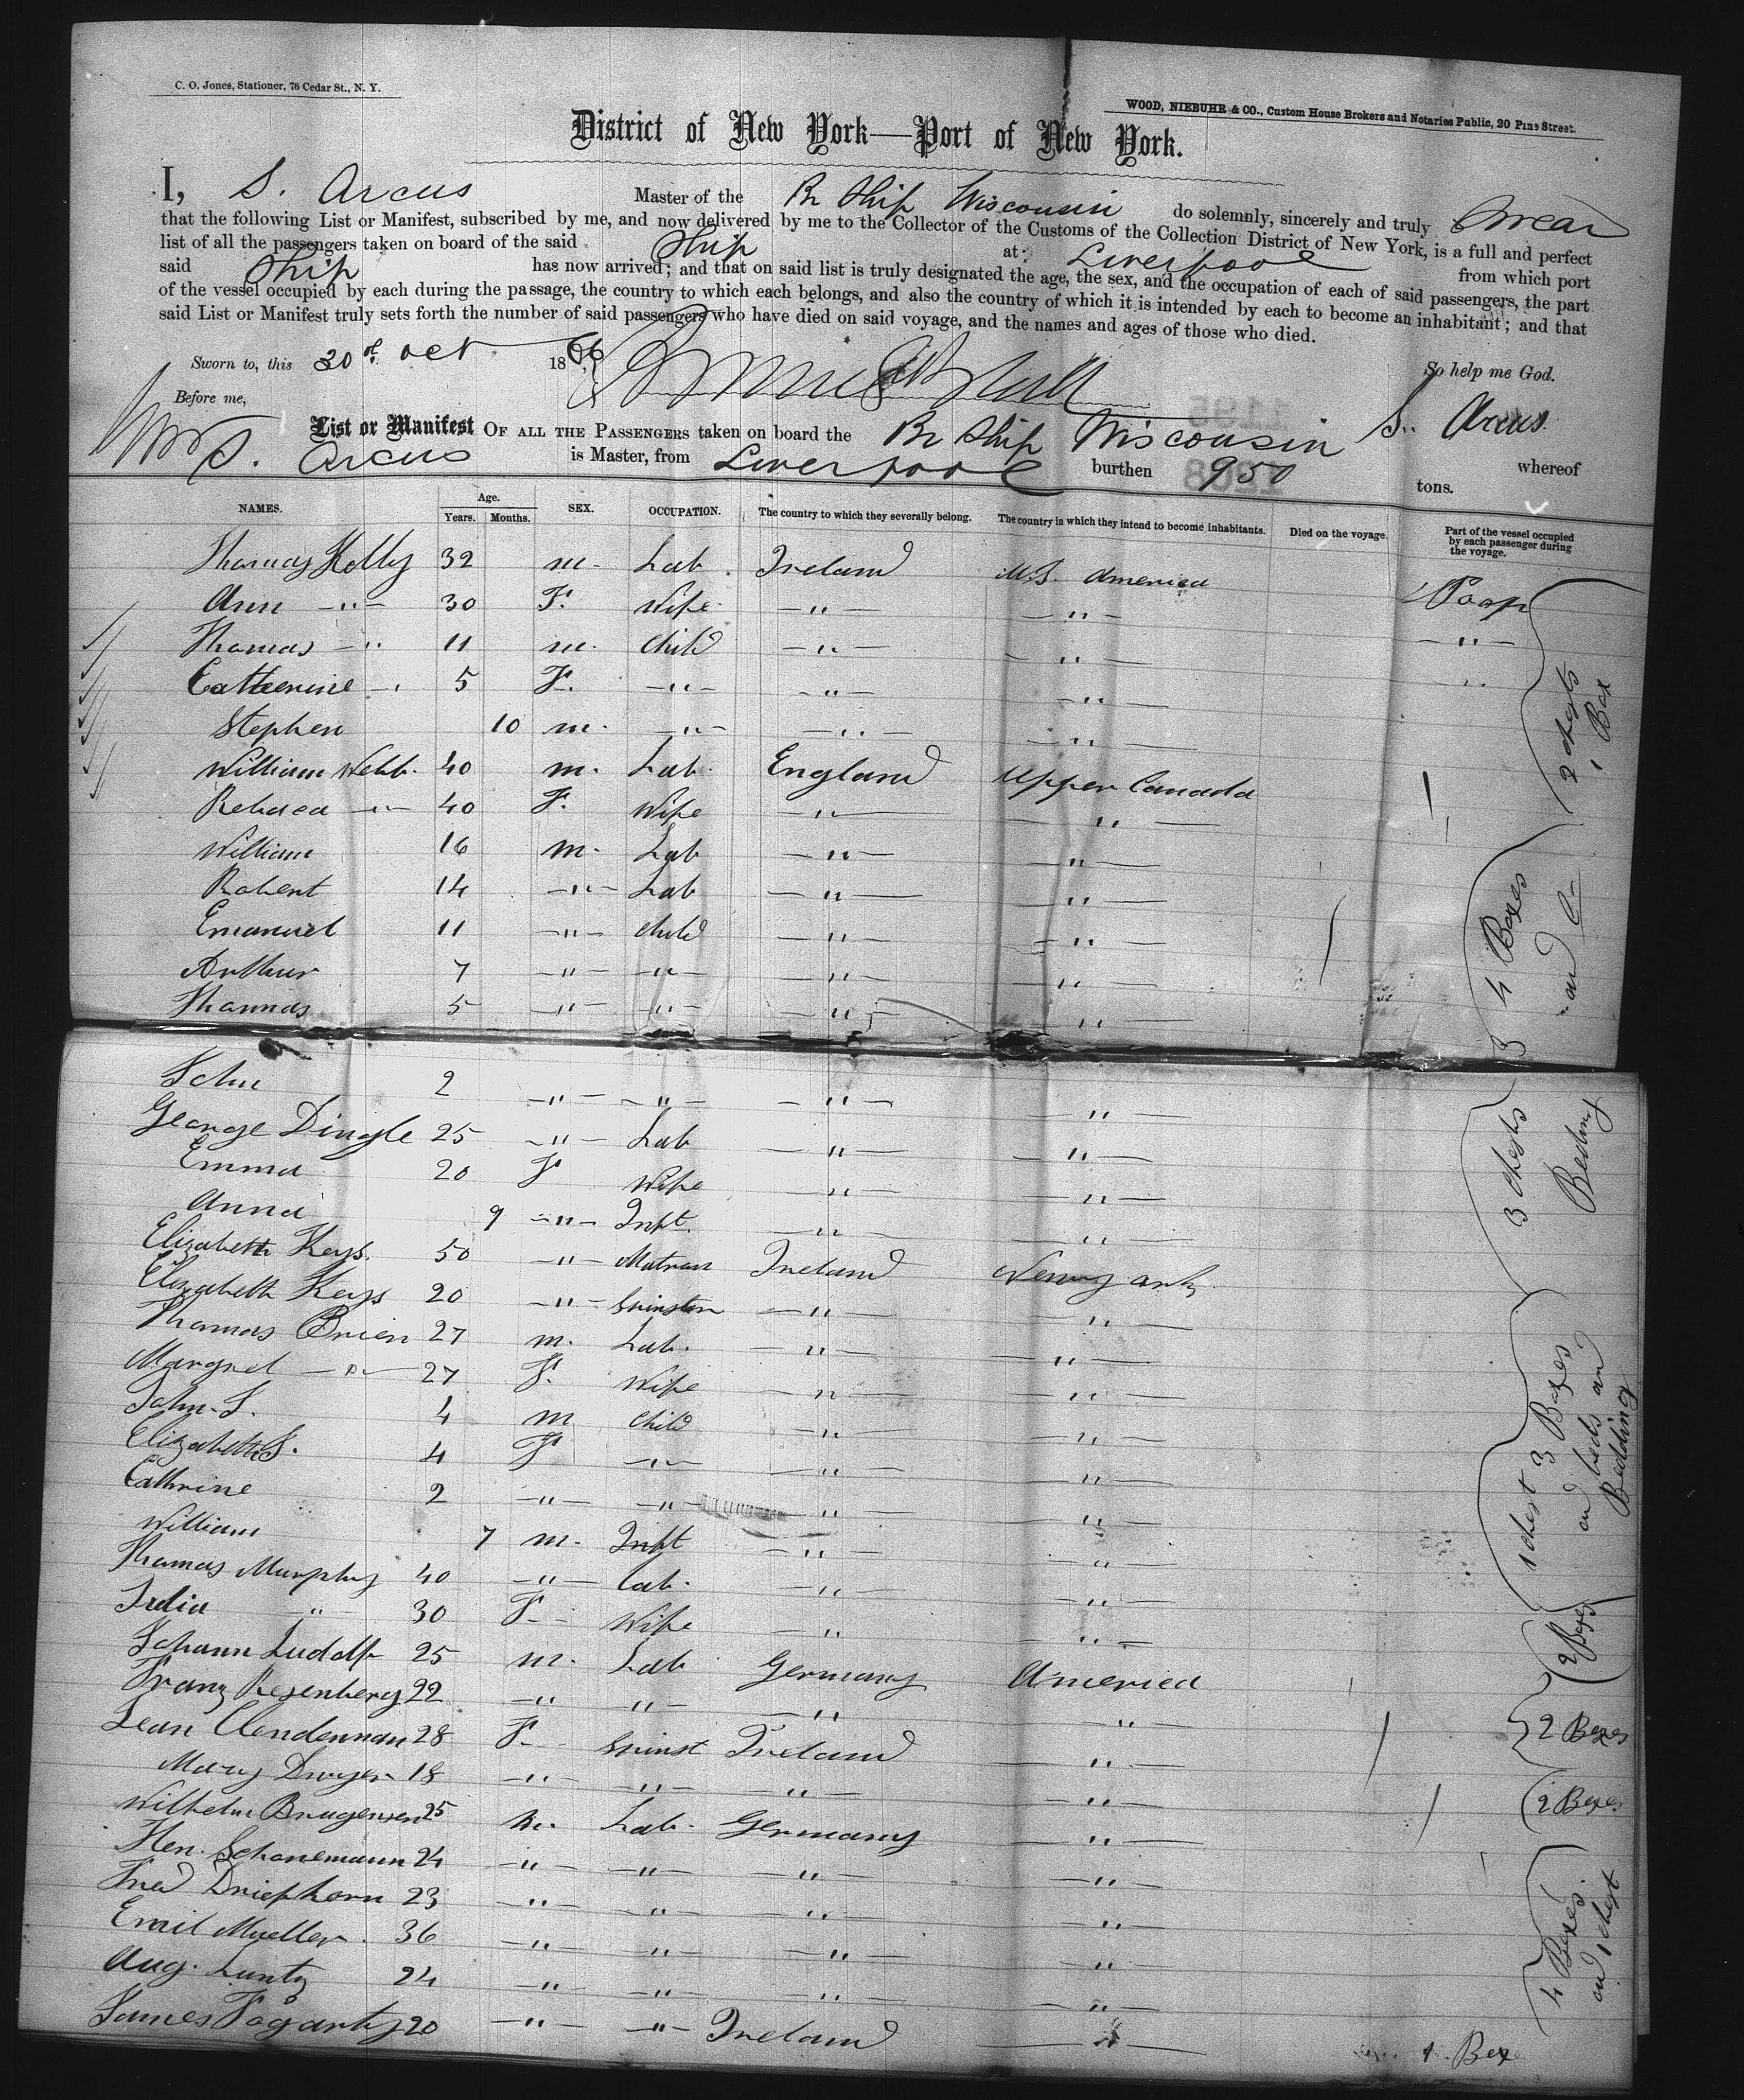 C. O. Jones, Stationer, 76 Cedar St., N. Y.
WOOD, NIEBUHR & CO., Custom House Brokers and Notaries Public, 20 Pine Street.
District of New York—Port of New York.
I, S. Arcus Master of the Br Ship Wisconsin do solemnly, sincerely and truly Swear
that the following List or Manifest, subscribed by me, and now delivered by me to the Collector of the Customs of the Collection District of New York, is a full and perfect
list of all the passengers taken on board of the said Ship at Liverpool from which port
said Ship has now arrived; and that on said list is truly designated the age, the sex, and the occupation of each of said passengers, the part
of the vessel occupied by each during the passage, the country to which each belongs, and also the country of which it is intended by each to become an inhabitant; and that
said List or Manifest truly sets forth the number of said passengers who have died on said voyage, and the names and ages of those who died.
Sworn to, this 30 Oct 1866 So help me God.
Before me, S. Arcus
List or Manifest OF ALL THE PASSENGERS taken on board the Br Ship Wisconsin whereof
S. Arcus is Master, from Liverpool burthen 950 tons.
NAMES. Age. Years. Months. SEX. OCCUPATION. The country to which they severally belong. The country in which they intend to become inhabitants. Died on the voyage. Part of the vessel occupied by each passenger during the voyage.
Thomas Kelly 32 m. Lab. Ireland U.S. America Poop
Ann —"— 30 F. Wife —"— —"— —"—
Thomas —" 11 m. Child —"— —"— "
Catherine —" 5 F. —"— —"— —"—
Stephen 10 m. —"— —"— —"— 2 Chests 1 Box
William Webb. 40 m. Lab. England Upper Canada
Rebecca —"— 40 F. Wife —"— —"—
William 16 m. Lab —"— —"—
Robert 14 —"— Lab —"— —"—
Emanuel 11 —"— Child —"— —"— 4 Boxes
Arthur 7 —"— —"— —"— —"—
Thomas 5 —"— —"— —"— —"—
John 2 —"— —"— —"— —"—
George Dingle 25 —"— Lab —"— —"— 3 Chests Bedding
Emma 20 F Wife —"— —"—
Anna 9 —"— Inft. —"— —"—
Elizabeth Keys. 50 —"— Matron Ireland
Elizabeth Keys 20 —"— Spinster —"— —"—
Thomas Brien 27 m. Lab. —"— —"—
Margret —"— 27 F. Wife —"— —"— 1 Chest 3 Boxes
John. S. 4 m Child —"— —"— and beds and Bedding
Elizabeth S. 4 F —"— —"— —"—
Cathrine 2 —"— —"— —"— —"—
William 7 m. Inft —"— —"—
Thomas Murphy 40 —"— Lab. —"— —"— 2 Boxes
Julia —"— 30 F Wife —"— —"—
Johann Ludolf 25 m. Lab Germany America 2 Boxes
Franz Rosenberg 22 —"— "— —"— —"—
Jean Clendennan 28 F. Spinst Ireland —"— 2 Boxes
Mary Dwyer 18 —"— —"— —"— —"—
Wilhelm Brugensen 25 m. Lab. Germany —"—
Hen. Schonemann 24 —"— —"— —"— —"—
Fred Driephorn 23 —"— —"— —"— —"— 4 Boxes and 1 Chest
Emil Mueller 36 —"— —"— —"— —"—
Aug. Luntz 24 —"— —"— —"— —"—
James Fogarty 20 —"— —"— Ireland —"— 1. Box